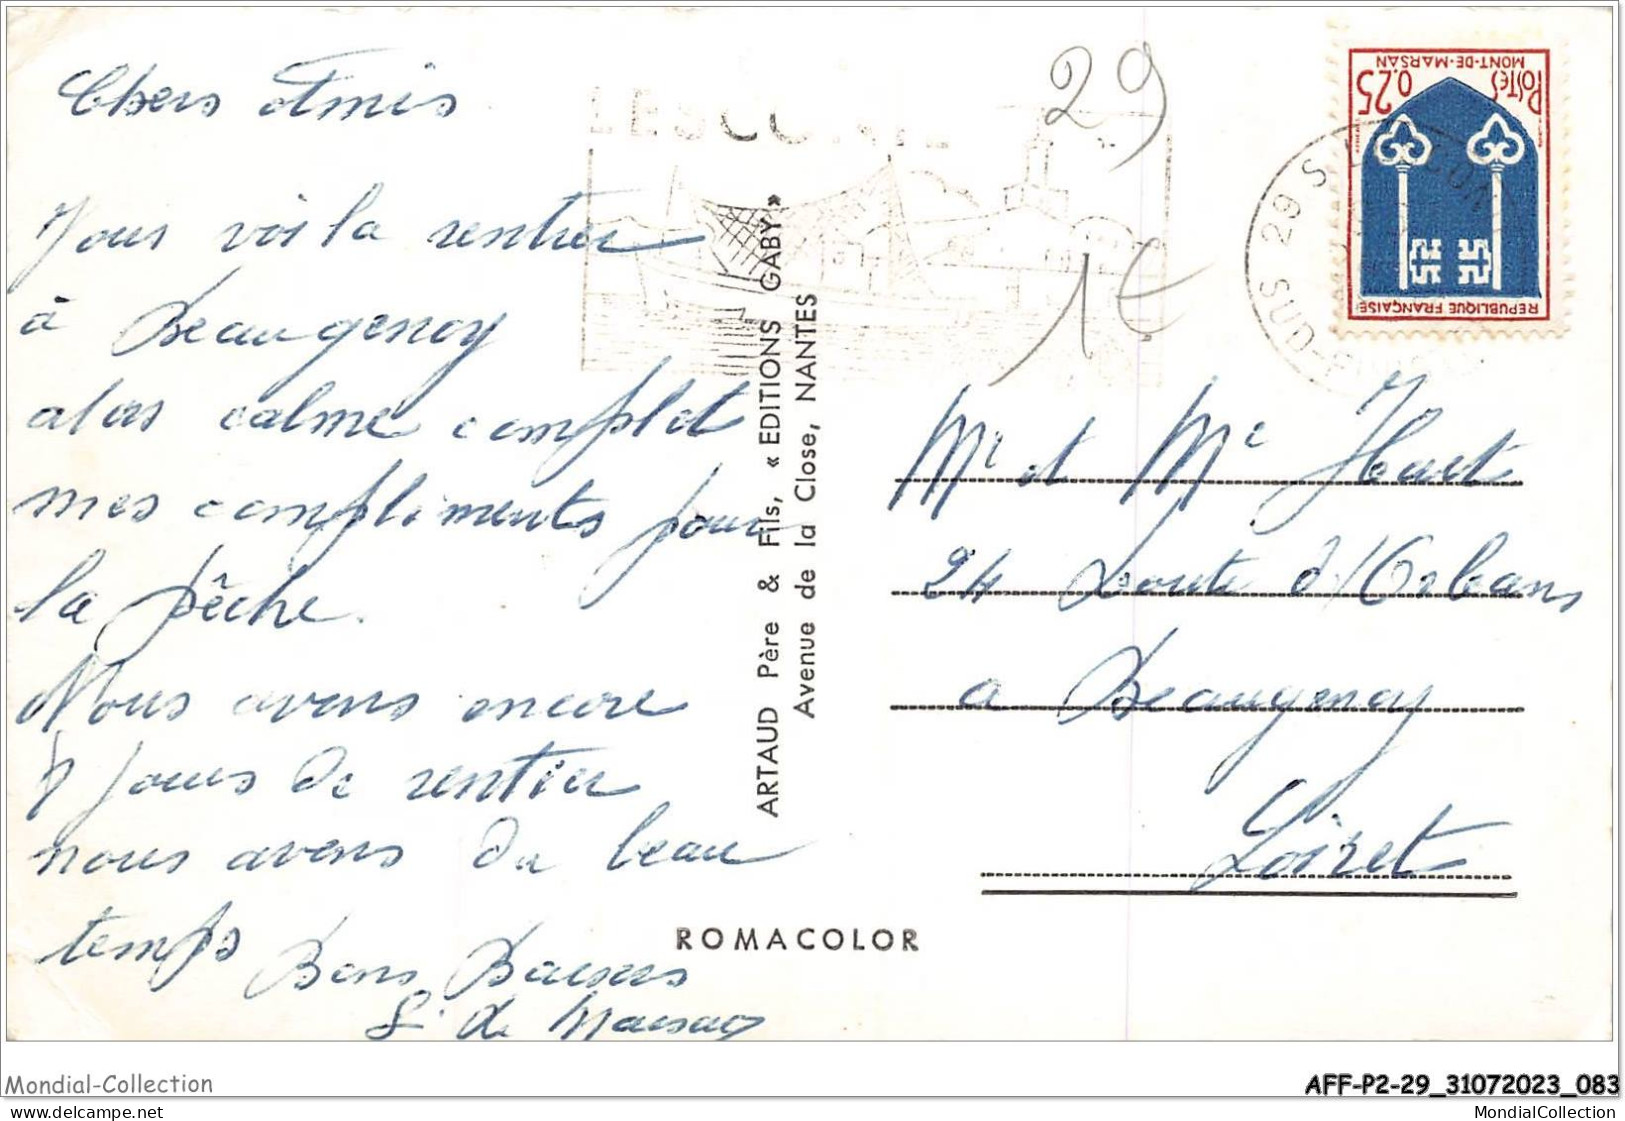 Chers Amis
Vous voila rentrer
à Beaugency
alors calme complet
mes compliments pour
la pêche.
Nous avons encore
8 jours de rentier
nous avons du beau
temps Bons Baisers
ROMACOLOR
ARTAUD Père & Fils, « EDITIONS GABY »
Avenue de la Close, NANTES
29
1€
POSTES 0.25
MONT-DE-MARSAN
REPUBLIQUE FRANÇAISE
29 S
SUD
Mr et Me
24 Route d'Orléans
a Beaugency
Loiret
Mondial-Collection
AFF-P2-29_31072023_083
MondialCollection